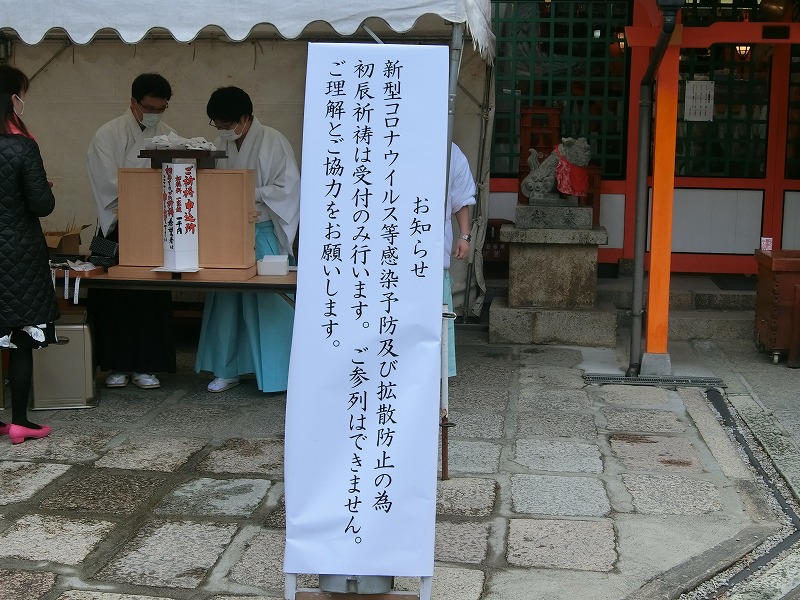 お知らせ
新型コロナウイルス等感染予防及び拡散防止の為
初辰祈祷は受付のみ行います。ご参列はできません。
ご理解とご協力をお願いします。
ご祈祷申込所